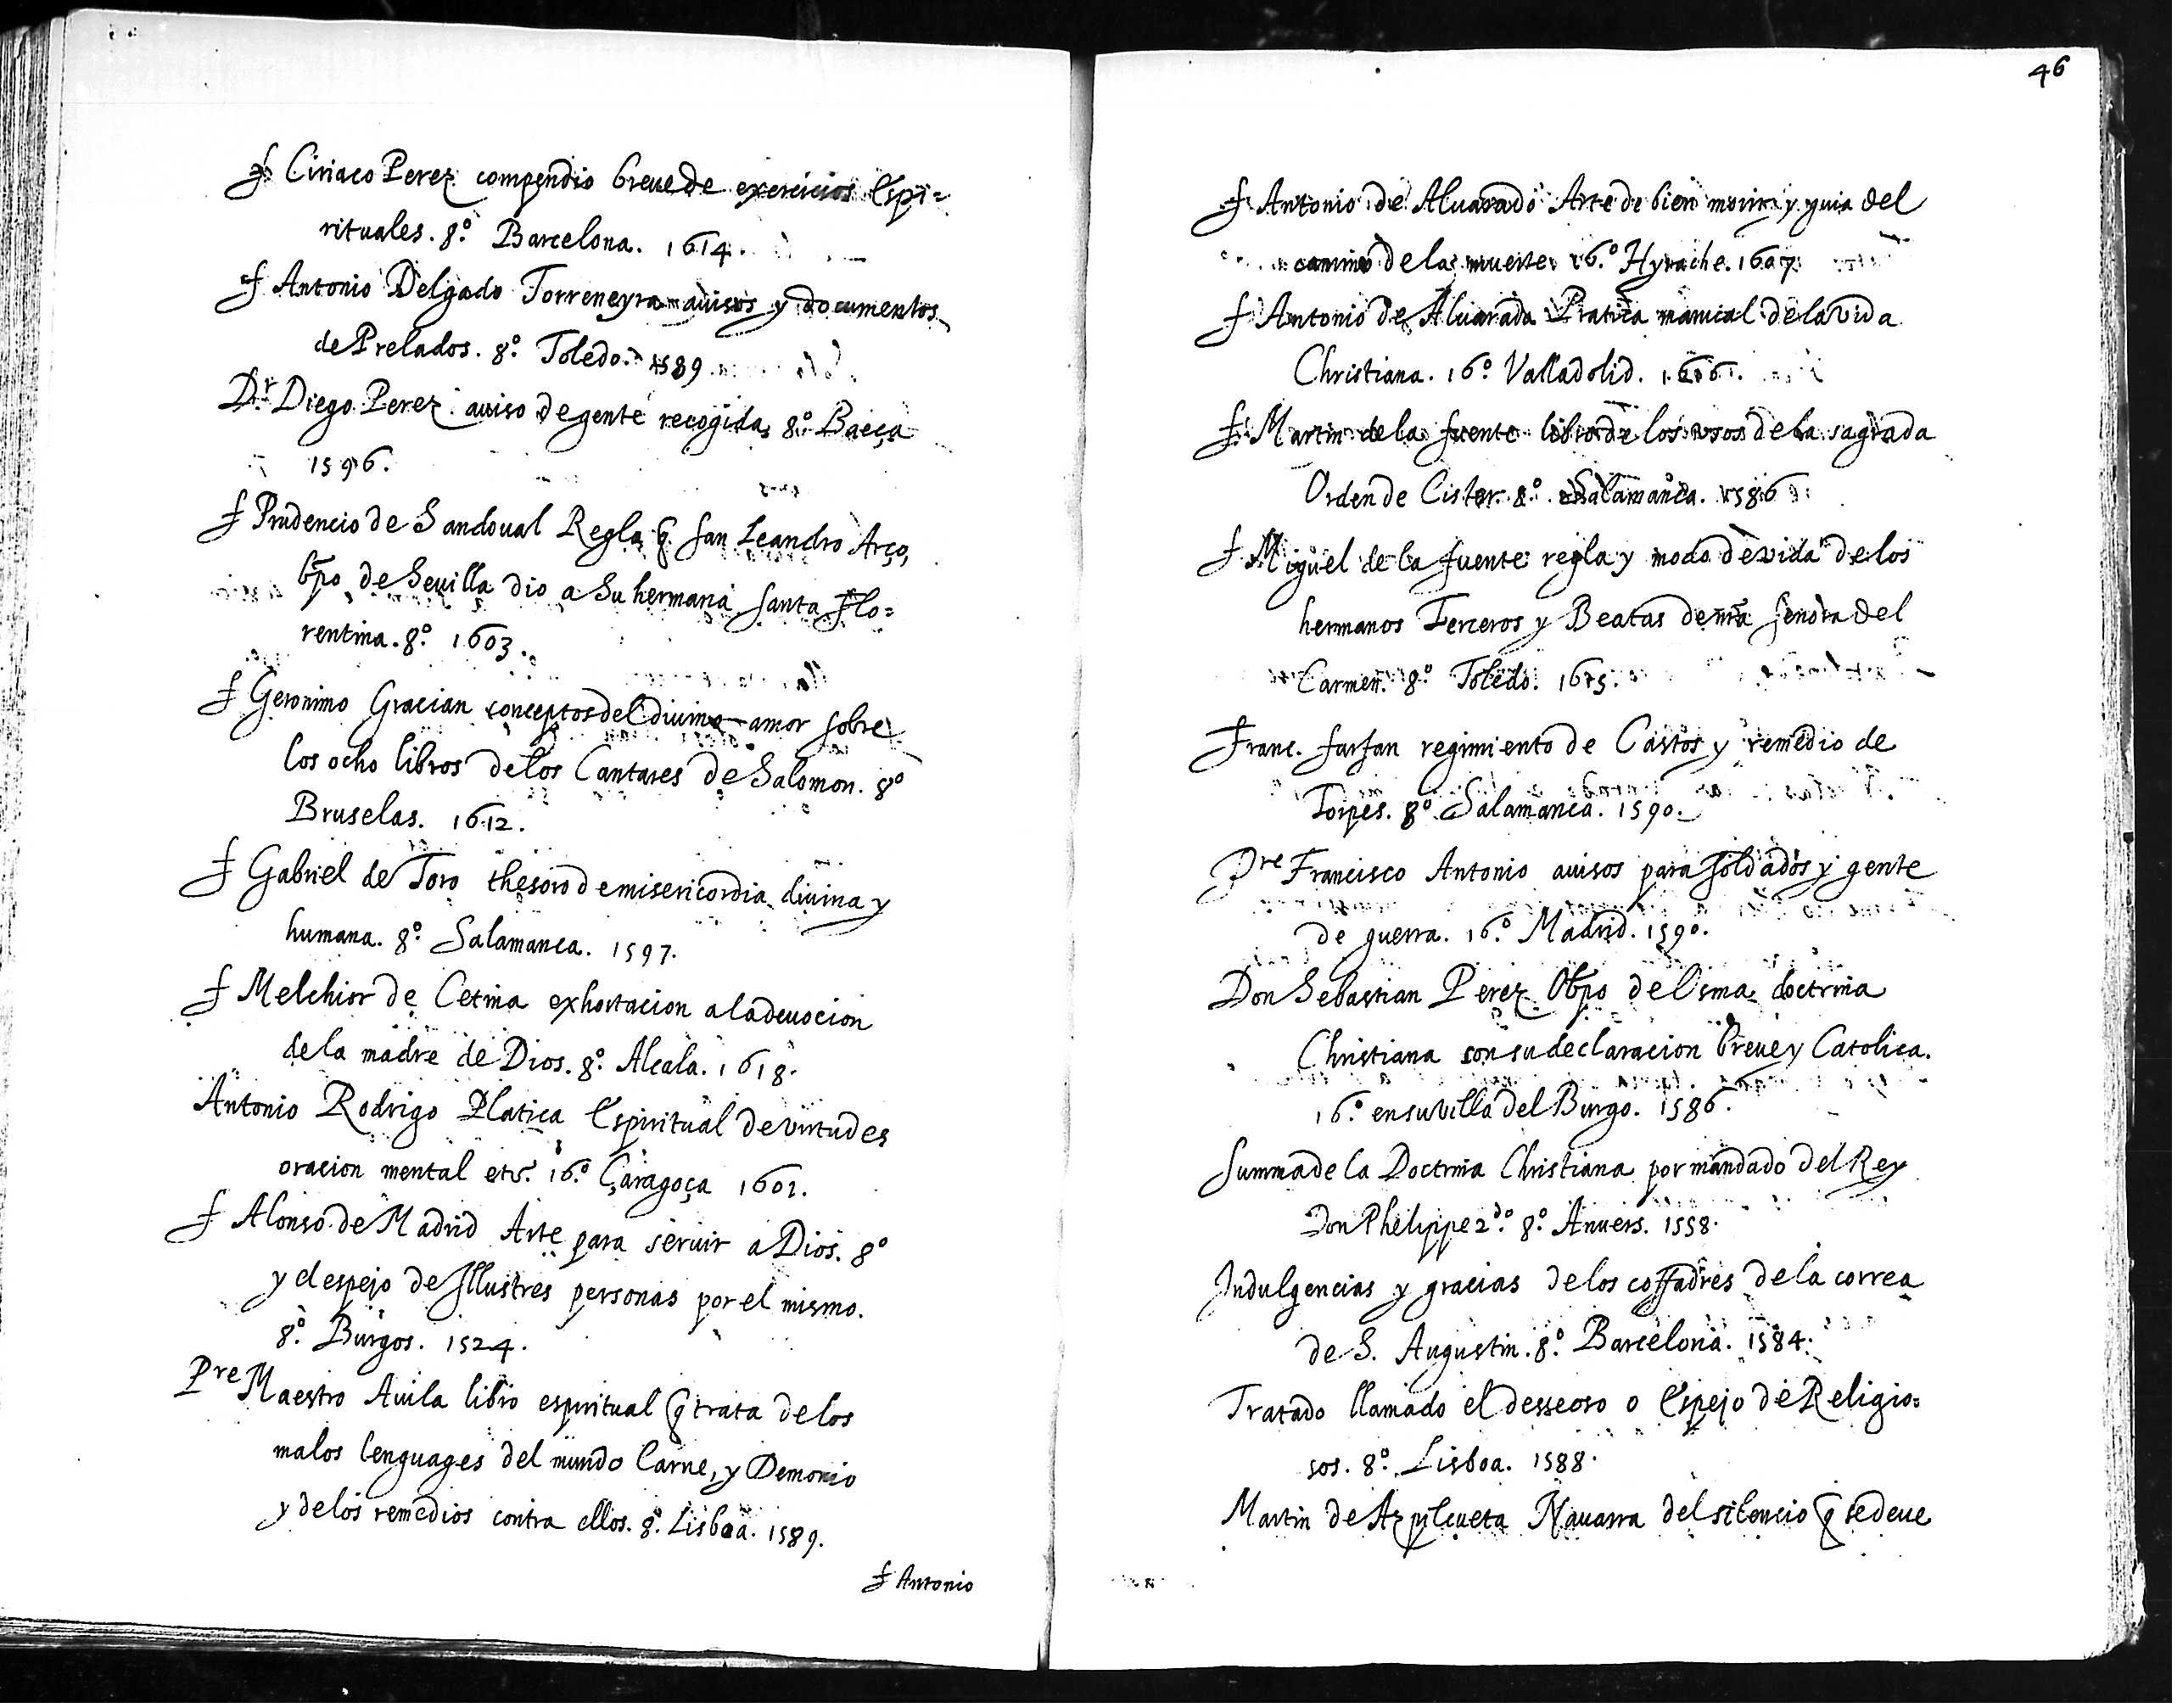 f Ciriaco Perez compendio breue de exercicios Espi=
rituales. 8º. Barcelona. 1614.
f Antonio Delgado Torreneyra auisos y documentos
de Prelados. 8º. Toledo. 1589
Dr. Diego Perez auiso de gente recogida, 8º. Baeça
1596.
f Prudencio de Sandoual Regla q̃ san Leandro Arço,
bp̃o de Seuilla dio a su hermana santa Flo=
rentina. 8º. 1603.
f Geronimo Gracian conceptos del diuino amor sobre
los ocho libros de los Cantares de Salomon. 8º
Bruselas. 1612.
f Gabriel de Toro thesoro de misericordia diuina y
humana. 8º. Salamanca. 1597.
f Melchior de Cetina exhortacion a la deuocion
de la madre de Dios. 8º. Alcala. 1618.
Antonio Rodrigo Platica Espiritual de virtudes
oracion mental etc. 16º. Çaragoça 1602.
f Alonso de Madrid Arte para seruir a Dios. 8º
y el espejo de Illustres personas por el mismo.
8º. Burgos. 1524.
Pre Maestro Auila libro espiritual q̃ trata de los
malos lenguages del mundo Carne, y Demonio
y de los remedios contra ellos. 8º. Lisboa. 1589.
f Antonio
46
f Antonio de Aluarado Arte de bien morir y guia del
camino de la muerte 16º. Hyrache. 1607
f Antonio de Aluarado Pratica manual de la vida
Christiana. 16º. Valladolid.
f Martin de la fuente libro de los vsos de la sagrada
Orden de Cister. 8º. Salamanca. 1586
f Miguel de la fuente regla y modo de vida de los
hermanos Terceros y Beatas de nr̃a señora del
Carmen. 8º. Toledo. 1615.
Franc. farfan regimiento de Castos y remedio de
Torpes. 8º. Salamanca. 1590.
Pre Francisco Antonio auisos para soldados y gente
de guerra. 16º. Madrid. 1590.
Don Sebastian Perez Obp̃o de Osma doctrina
Christiana con su declaracion breue y Catolica.
16º. en su villa del Burgo. 1586.
Summa de la Doctrina Christiana por mandado del Rey
Don Phelippe 2do. 8º. Anuers. 1558.
Indulgencias y gracias de los coffadres de la correa
de S. Augustin. 8º. Barcelona. 1584.
Tratado llamado el desseoso o Espejo de Religio=
sos. 8º. Lisboa. 1588.
Martin de Azpilcueta Nauarra del silencio q̃ se deue